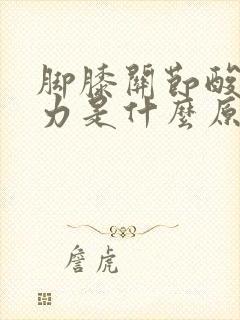 脚膝關節酸
力是什麼原
詹虎